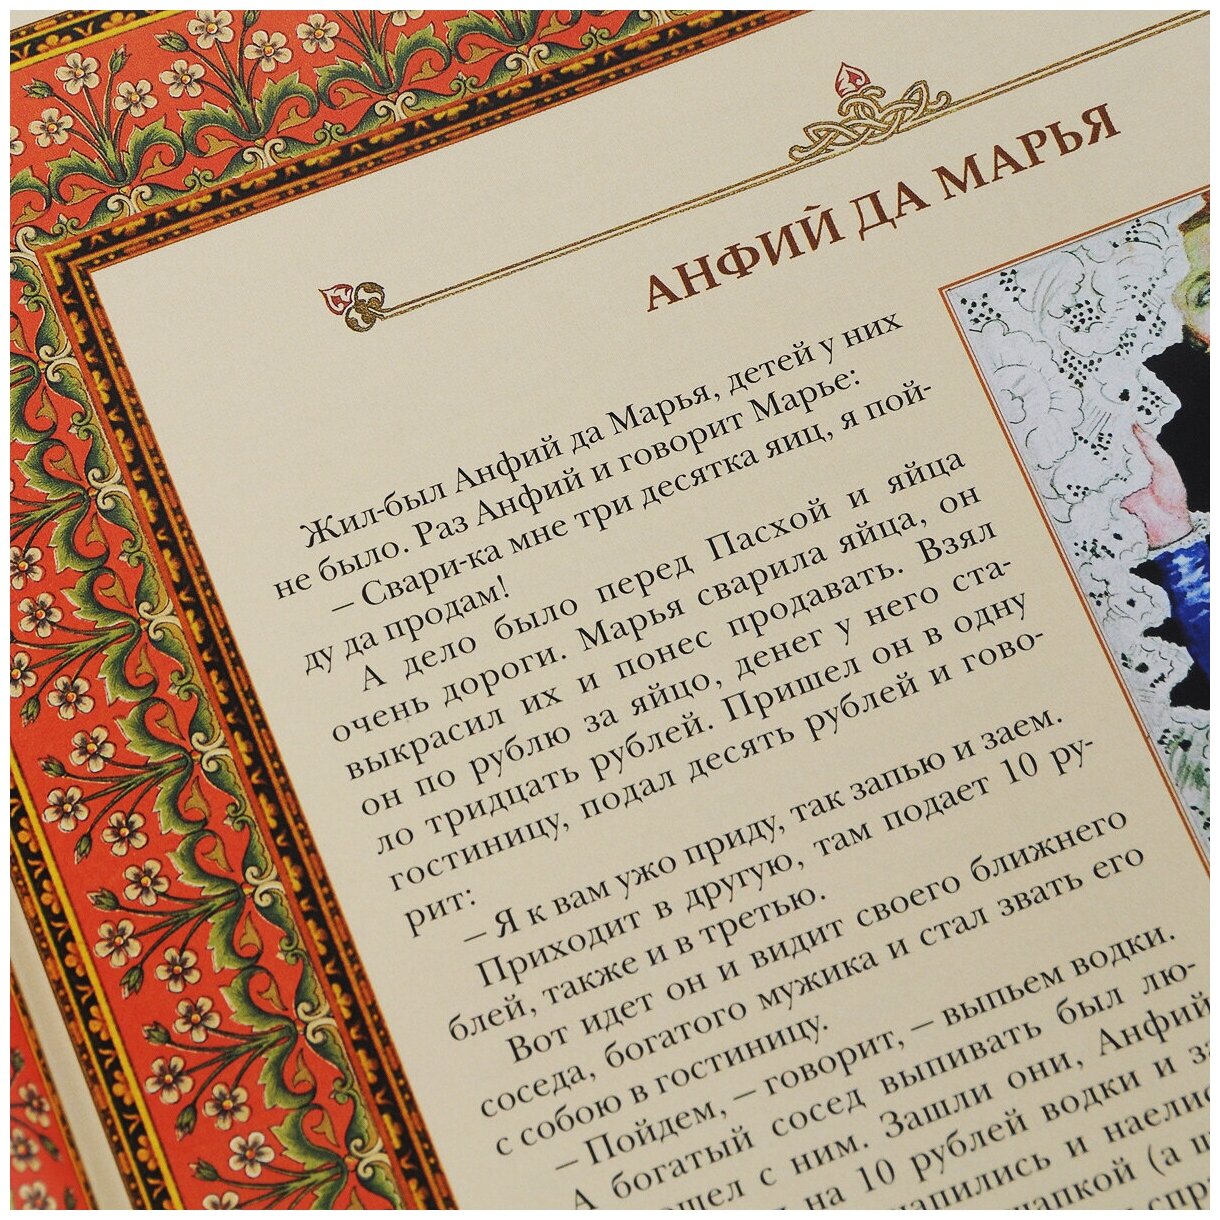 АНФИЙ ДА МАРЬЯ
Жил-был Анфий да Марья, детей у них
не было. Раз Анфий и говорит Марье:
– Свари-ка мне три десятка яиц, я пой-
ду да продам!
А дело было перед Пасхой и яйца
очень дороги. Марья сварила яйца, он
выкрасил их и понес продавать. Взял
он по рублю за яйцо, денег у него ста-
ло тридцать рублей. Пришел он в одну
гостиницу, подал десять рублей и гово-
рит:
– Я к вам ужо приду, так запью и заем.
Приходит в другую, там подает 10 ру-
блей, также и в третью.
Вот идет он и видит своего ближнего
соседа, богатого мужика и стал звать его
с собою в гостиницу.
– Пойдем, – говорит, – выпьем водки.
А богатый сосед выпивать был лю-
с ним. Зашли они, Анфий
на 10 рублей водки и
и
(а